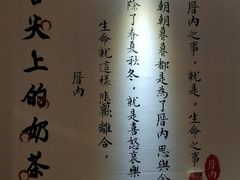 厝內之事，就是，生命之事
朝朝暮暮都是為了厝內 思與
除了春夏秋冬，就是喜怒哀樂
生命就這樣 悲歡離合。
厝內
舌尖上的奶茶